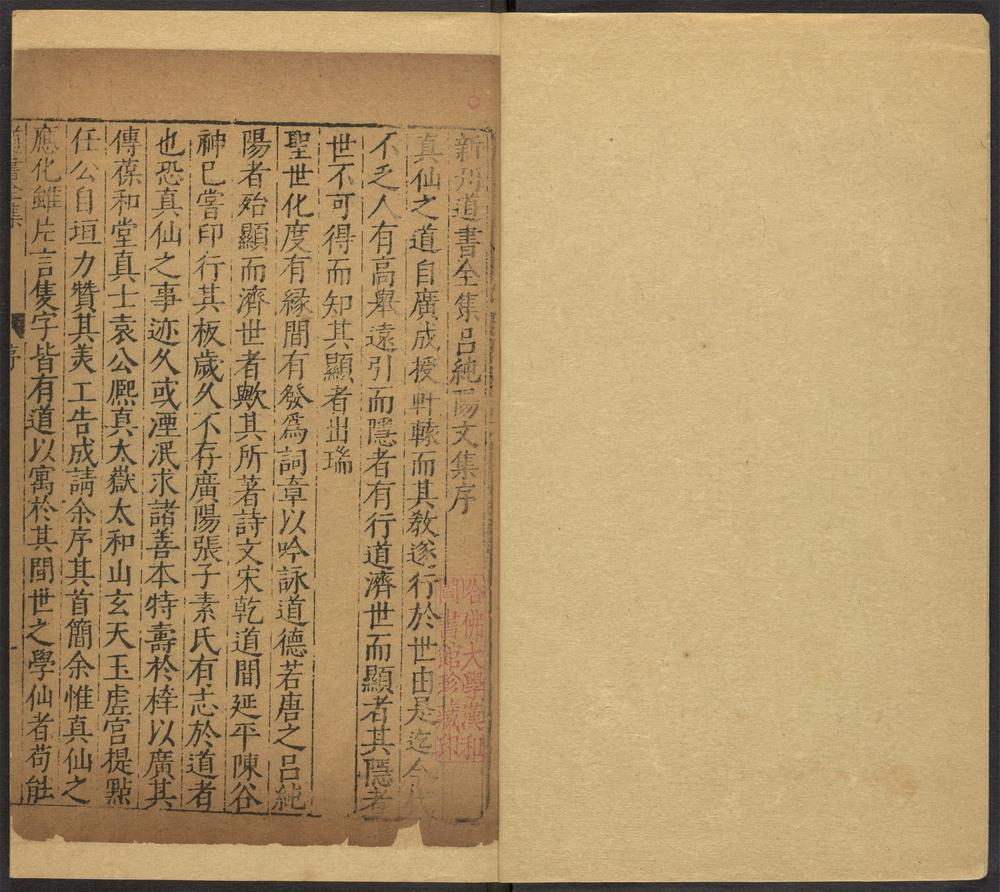 新刋道書全集呂純陽文集序
真仙之道自廣成授軒轅而其教遂行於世由是迄今代
不乏人有高舉遠引而隱者有行道濟世而顯者其隱者
世不可得而知其顯者出瑞
聖世化度有緣間有發爲詞章以吟詠道德若唐之呂純
陽者殆顯而濟世者歟其所著詩文宋乾道間延平陳谷
神已嘗印行其板歲久不存廣陽張子素氏有志於道者
也恐真仙之事迹久或湮泯求諸善本特壽於梓以廣其
傳葆和堂真士袁公熈真太嶽太和山玄天玉虛宮提點
任公自垣力贊其美工告成請余序其首簡余惟真仙之
應化雖片言隻字皆有道以寓於其間世之學仙者苟能
道書全集
序
一
哈佛大學漢和
圖書館珍藏印